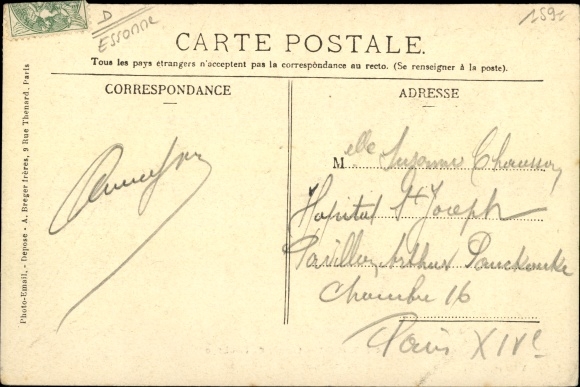 D
Essonne
CARTE POSTALE.
Tous les pays étrangers n'acceptent pas la correspondance au recto. (Se renseigner à la poste).
CORRESPONDANCE
ADRESSE
Melle Suzanne
Hopital St Joseph
Pavillon Arthur
Chambre 16
Paris XIVe
Photo-Email, - Déposé - A. Breger frères, 9 Rue Thenard, Paris